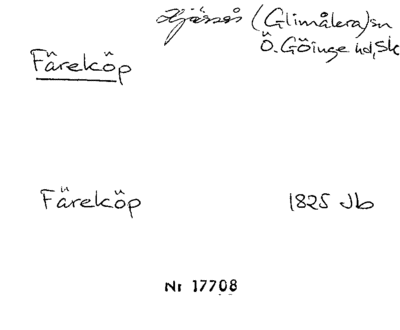 Hjärsås (Glimåkra) sn
Ö. Göinge hd, Sk
Färeköp
Färeköp 1825 Jb
Nr 17708